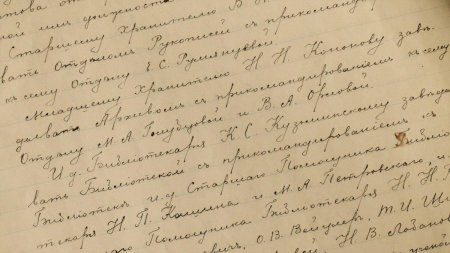 ной или должности
Старшему Хранителю В.
вать Отделом Рукописей съ прикоманди
къ сему Отделу Е. С. Румянцевой.
Младшему Хранителю Н. Н. Кононову заве-
дывать Архивом съ прикомандированіем къ сему
Отделу М. А. Голубцовой и В. А. Орловой.
И. д. Библіотекаря К. С. Кузьминскому заведы
вать Библіотекой съ прикомандированіем къ
Библіотеке и. д. Старшаго Помощника Библіо
текаря Н. П. Кашина и М. А. Петровскаго, и.
Помощника Библіотекаря Н. Н.
О. В. Т. И.
Н. В. Лобанов